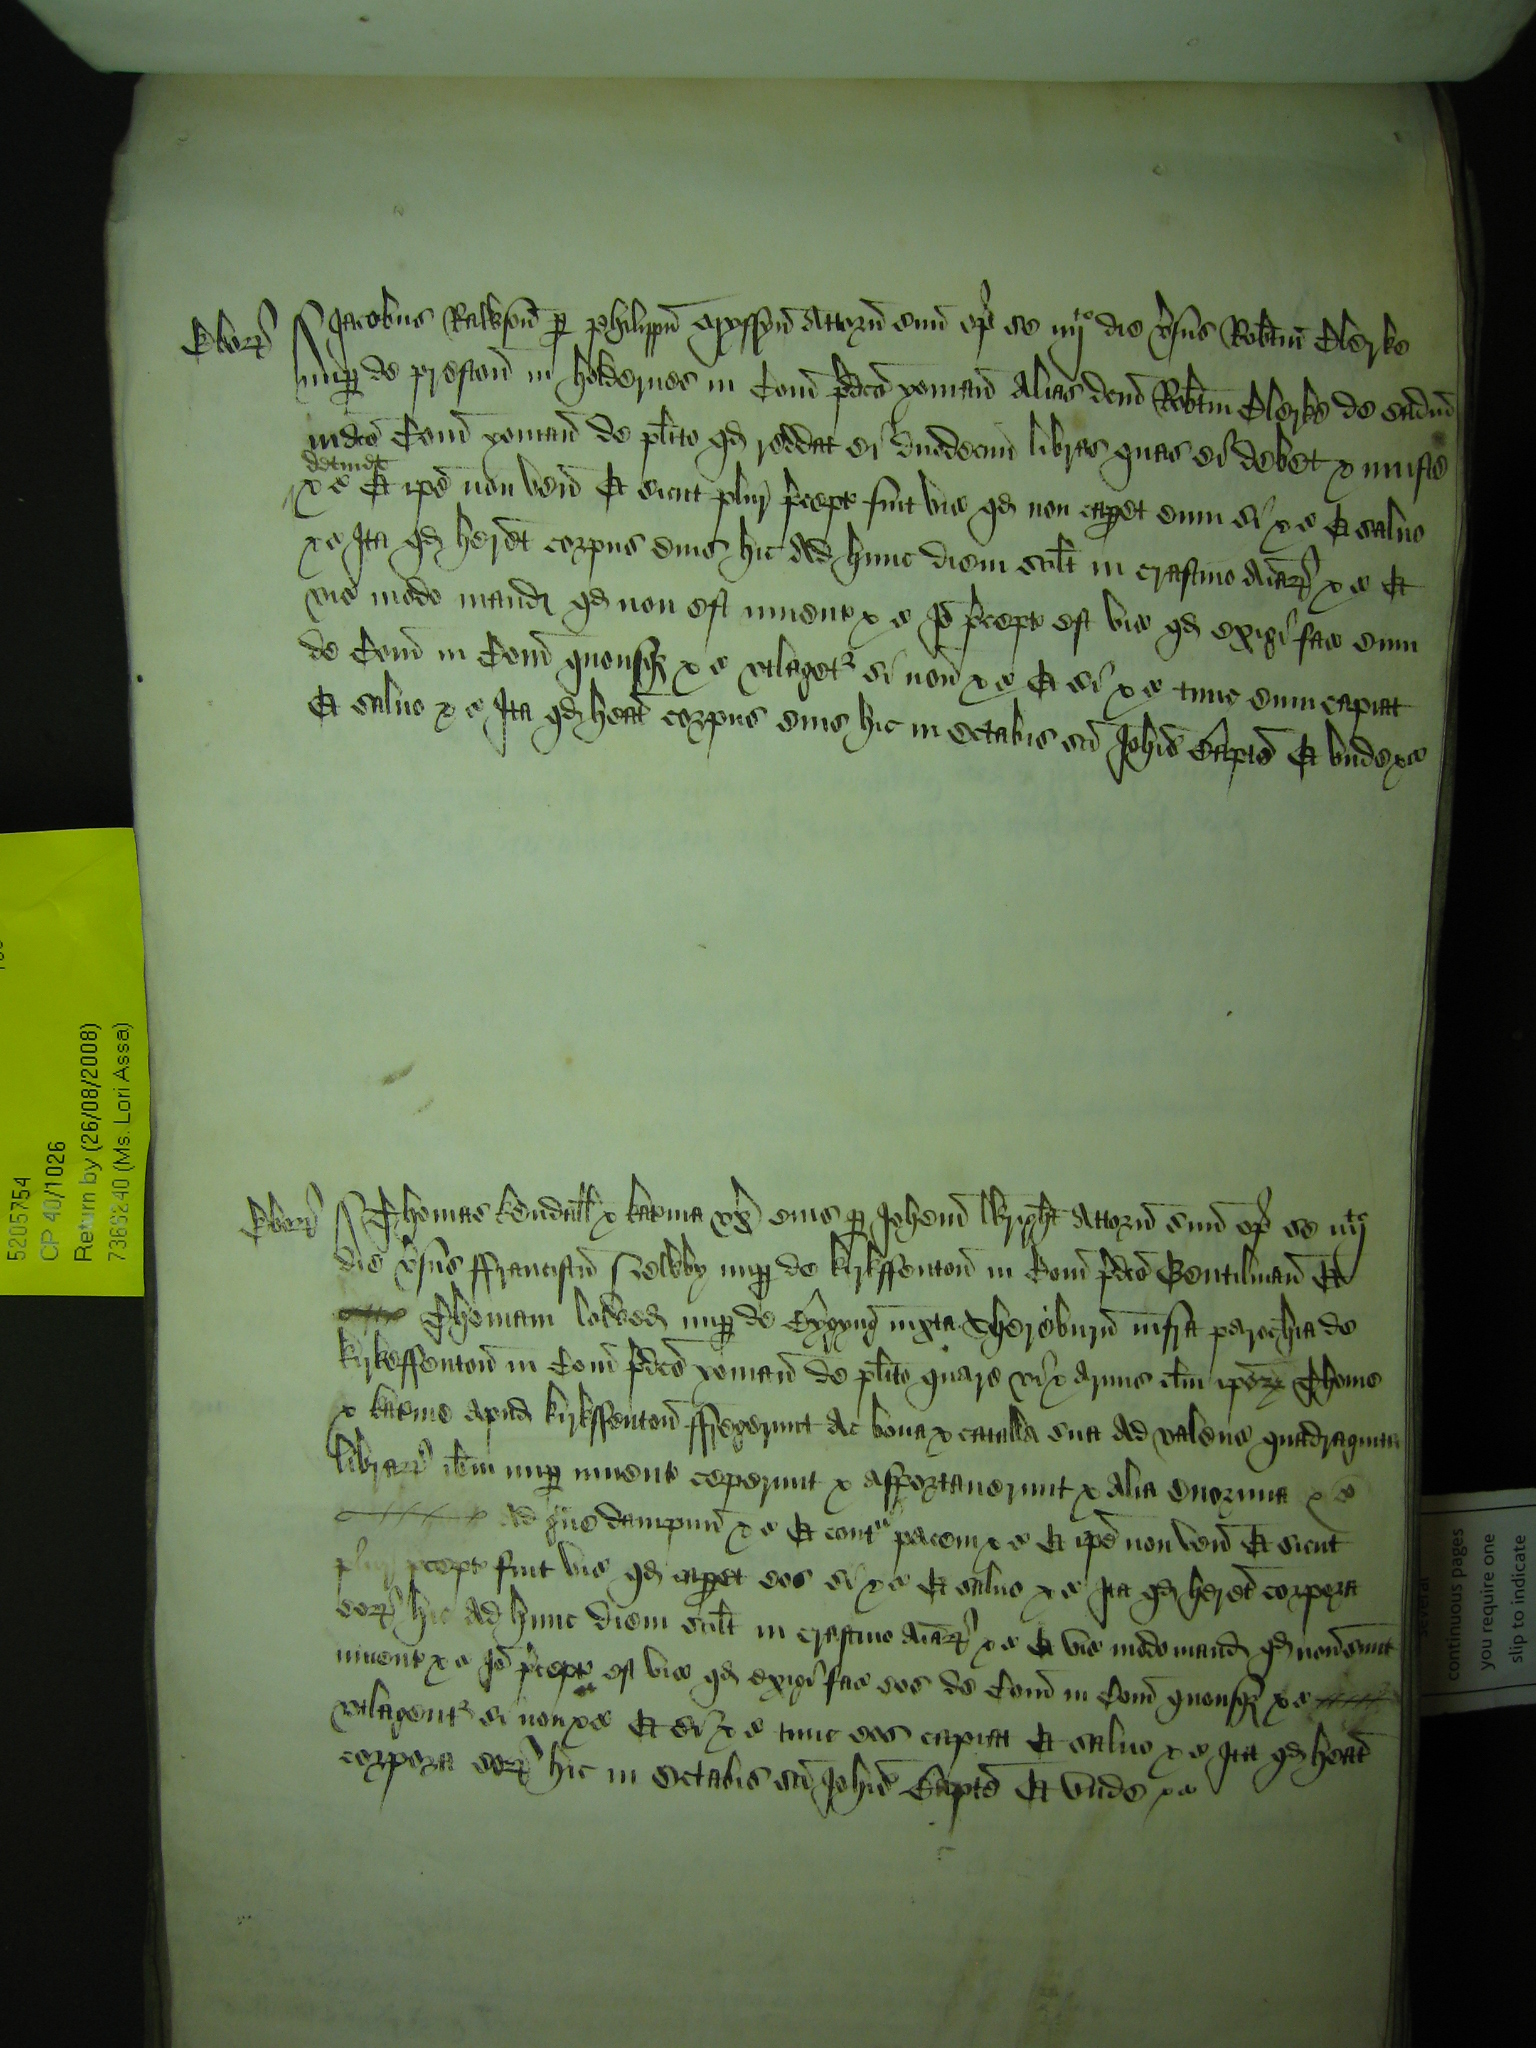 Ebor'
Jacobus Rawkson p Philippu Attorn suu op se iiijto die vsus Robtm Clerke
nup de Preston in Holdernes in Com pdco yoman alias dcm Robtm Clerke de eadm
in dco Com yoman de plito qd reddat ei duodecim libras quas ei debet & iniuste
detinet
&c Et ipe non ven Et sicut plur pcept fuit vic qd non capet eum si &c Et salvo
&c Ita qd heret corpus eius hic ad hunc diem scilt in crastino Aiar' &c Et
vic modo mand qd non est invent &c Jo pcept est vic qd exigi fac eum
de Com in Com quousq &c utlaget' si non &c Et si &c tunc eum capiat
Et salvo &c Ita qd heat corpus eius hic in Octabis sci Johis Bapte Et unde &c
Ebor'
Thomas Kendall & Katina ux eius p Johem Wright Attorn suu op se iiijto
die vsus ffranciscu Selwby nup de Kirkffenton in Com pdco Gentilman Et
Thomam nup de iuxta Shereburn infra parochia de
Kirkeffenton in Com pdco yoman de plito quare vi & armis clm ipor' Thome
& Katine apud Kirkffenton ffregerunt ac bona & catalla sua ad valenc quadraginta
librar' ibm nup invent ceperunt & asportaverunt & alia enormia &c
ad gve dampnu &c Et contra pacem &c Et ipe non ven Et sicut
plur pcept fuit vic qd capet eos si &c Et salvo &c Ita qd heret corpora
eor' hic ad hunc diem scilt in crastino Aiar' &c Et vic modo mand qd non sunt
invent &c Jo pcept est vic qd exigi fac eos de Com in Com quousq &c
utlagent' si non &c Et si &c tunc eos capiat Et salvo &c Ita qd heat
corpora eor' hic in Octabis sci Johis Bapte Et unde &c
5205754
CP 40/1026
Return by (26/08/2008)
7366240 (Ms. Lori Assa)
several
continuous pages
you require one
slip to indicate